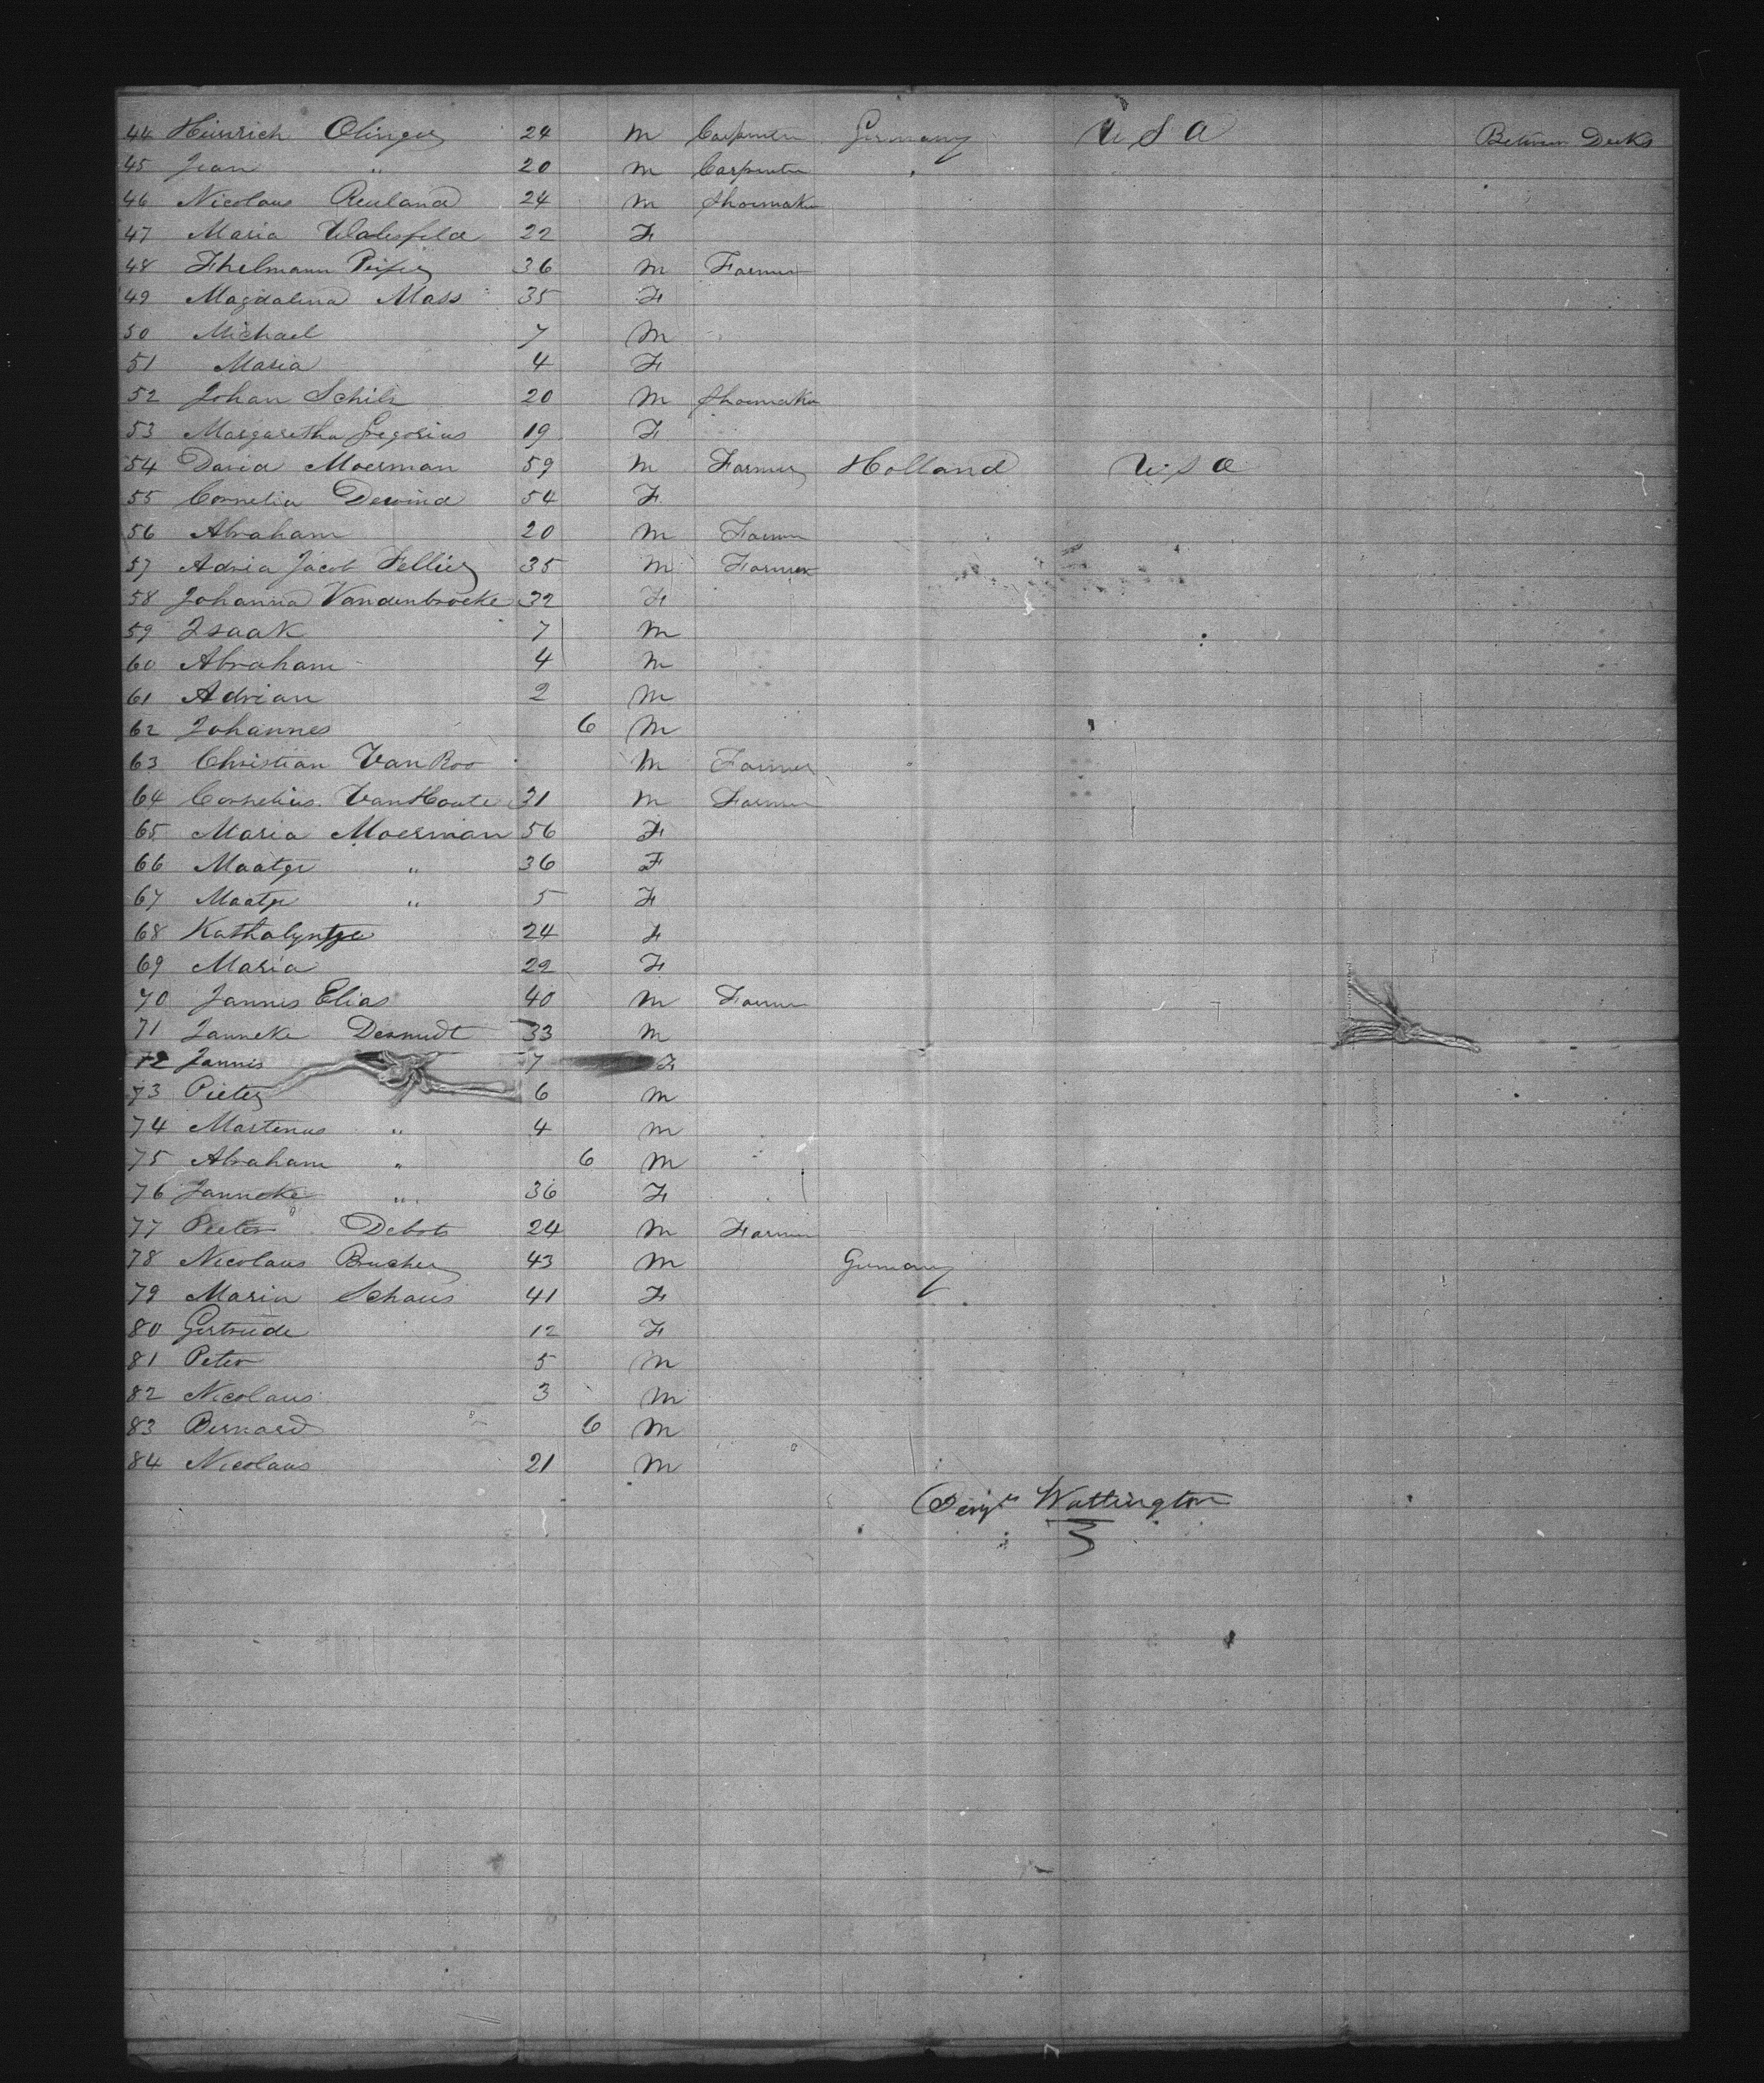 44 Heinrich Olinger 24 M Carpenter Germany U S A Between Decks
45 Jean " 20 M Carpenter "
46 Nicolaus Reuland 24 M Shoemaker
47 Maria 22 F
48 Thelmann Peifer 36 M Farmer
49 Magdalena Mass 35 F
50 Michael 7 M
51 Maria 4 F
52 Johan Schils 20 M Shoemaker
53 Margaretha Gregorius 19 F
54 David Moerman 59 M Farmer Holland U S A
55 Cornelia Dewind 54 F
56 Abraham 20 M Farmer
57 Adria Jacob 35 M Farmer
58 Johanna Vandenbroeke 32 F
59 Isaak 7 M
60 Abraham 4 M
61 Adrian 2 M
62 Johannes 6 M
63 Christian Van Roo M Farmer
64 Cornelius VanHoute 31 M Farmer
65 Maria Moerman 56 F
66 Maatge " 36 F
67 Maatge " 5 F
68 Kathalyntje 24 F
69 Maria 22 F
70 Jannis Elias 40 M Farmer
71 Janneke Desmidt 33 M
72 Jannis 7 F
73 Pieter 6 M
74 Martenus " 4 M
75 Abraham " 6 M
76 Janneke " 36 F
77 Pieter Debots 24 M Farmer
78 Nicolaus Bucher 43 M Germany
79 Maria Schaus 41 F
80 Gertrude 12 F
81 Peter 5 M
82 Nicolaus 3 M
83 Bernard 6 M
84 Nicolaus 21 M
Wattington